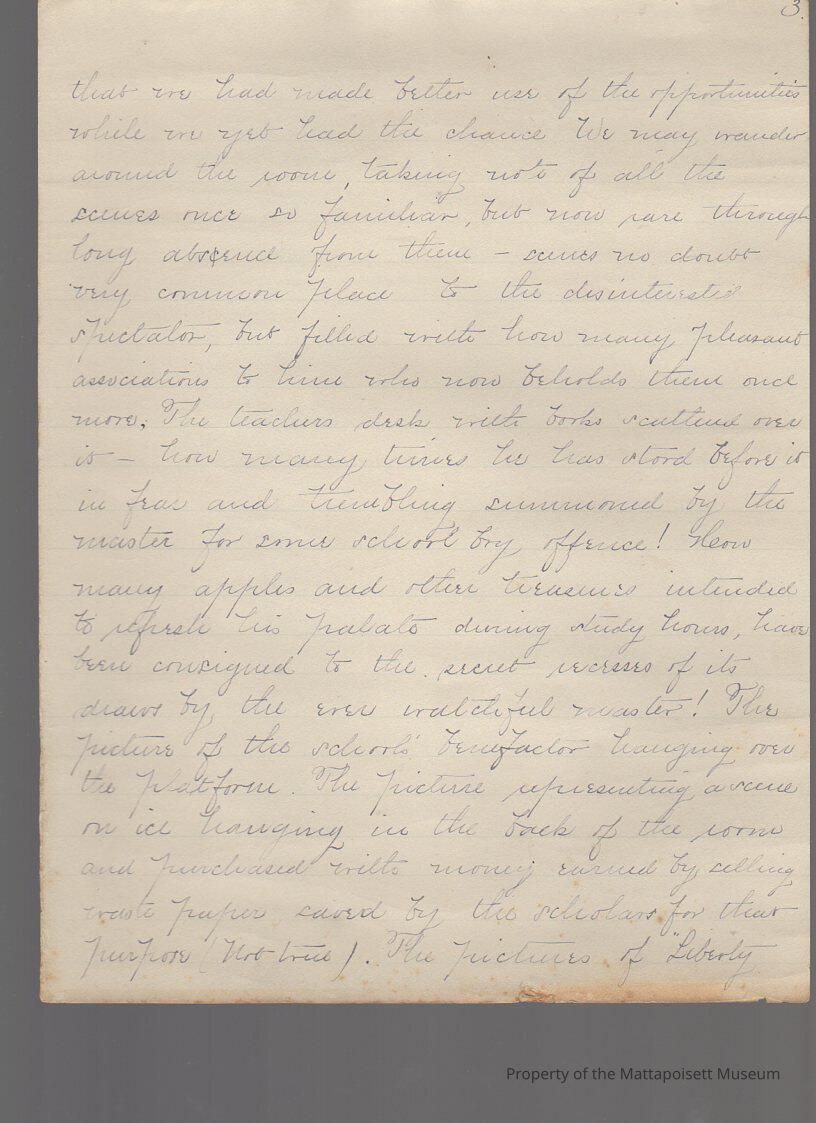 3.
that we had made better use of the opportunities
while we yet had the chance We may wander
around the room, taking note of all the
scenes once so familiar, but now rare through
long absence from them – scenes no doubt
very common place to the disinterested
spectator, but filled with how many pleasant
associations to him who now beholds them once
more. The teachers desk with books scattered over
it – how many times he has stood before it
in fear and trembling summoned by the
master for some school boy offence! How
many apples and other treasures intended
to refresh his palate during study hours, have
been consigned to the secret recesses of its
draws by the ever watchful master! The
picture of the schools' benefactor hanging over
the platform. The picture representing a scene
on ice hanging in the back of the room
and purchased with money earned by selling
waste paper saved by the scholars for that
purpose (Not true). The pictures of "Liberty
Property of the Mattapoisett Museum